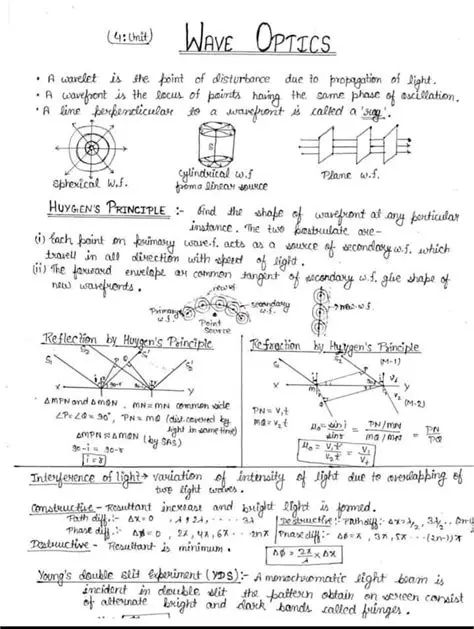 (4: Unit) WAVE OPTICS
• A wavelet is the point of disturbance due to propagation of light.
• A wavefront is the locus of points having the same phase of oscillation.
• A line perpendicular to a wavefront is called a 'ray'.
Spherical W.f.
Cylindrical w.f
from a linear source
Plane w.f.
HUYGEN'S PRINCIPLE :- find the shape of wavefront at any perticular
instance. The two postulate are-
(i) Each point on primary wave.f. acts as a source of secondary w.f. which
travell in all direction with speed of light.
(ii) The forward envelope or common tangent of secondary w.f. give shape of
new wavefronts.
new w.f
Primary w.f.
secondary w.f.
Point Source
new w.f.
Reflection by Huygen's Principle
S1 S2 S1'
P Q
X M N Y
90-r
ΔMPN and ΔMQN, MN = MN common side
∠P=∠Q=90°, PN = MQ (dist. covered by
light in same time)
ΔMPN ≅ ΔMQN (by SAS)
90-i = 90-r
i = r
Refraction by Huygen's Principle
(M-1)
V1
V2
(M-2)
PN = V1t
MQ = V2t
μ0 = sin i / sin r = PN/MN / MQ/MN = PN / PQ
μ0 = V1t / V2t = V1 / V2
Interference of light → variation of intensity of light due to overlapping of
two light waves.
Constructive - Resultant increase and bright light is formed.
Path diff.:- Δx = 0, λ, 2λ, ... 3λ
Phase diff:- Δϕ = 0, 2π, 4π, 6π ... 2nπ
Destructive - Resultant is minimum.
Destructive:- Path diff:- Δx = λ/2, 3λ/2
Phase diff:- Δϕ = π, 3π, 5π ... (2n-1)π
Δϕ = 2π/λ × Δx
Young's double slit Experiment (YDS):- A monochromatic light beam is
incident in double slit the pattern obtain on screen consist
of alternate bright and dark bands called fringes.